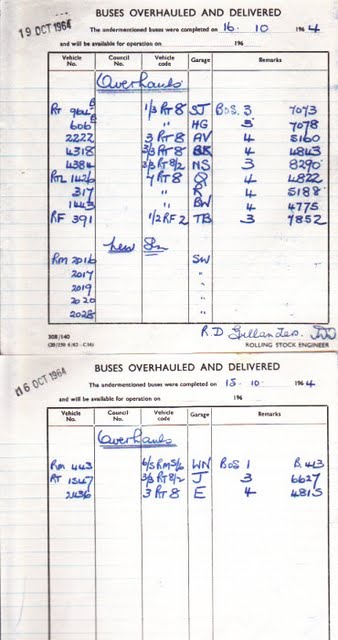 19 OCT 1964
BUSES OVERHAULED AND DELIVERED
The undermentioned buses were completed on 16. 10 1964
and will be available for operation on 196
Vehicle No. Council No. Vehicle code Garage Remarks
Overhauls
RT 964 1/3 RT 8 ST BoS. 3 7073
606 " HG 3 7078
2222 3 RT 8 AV 4 5160
4318 3/3 RT 8 BK 4 4843
4384 3/3 RT 8/2 NS 3 8290
RTL 1426 7 RT 8 Q 4 4822
317 " R 4 5188
1443 " BW 4 4775
RF 391 1/2 RF 2 TB 3 7852
New
RM 2016 SW
2017 "
2019 "
2020 "
2028 "
308/140
R.D Gillanders.
ROLLING STOCK ENGINEER
16 OCT 1964
BUSES OVERHAULED AND DELIVERED
The undermentioned buses were completed on 15. 10. 1964
and will be available for operation on 196
Vehicle No. Council No. Vehicle code Garage Remarks
Overhauls
RM 443 6/5 RM 5/6 WN BoS 1 B. 443
RT 1547 3/3 RT 8/2 J 3 6627
2436 3 RT 8 E 4 4815